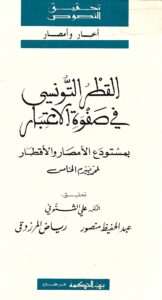 تحقيق
النصوص
أخبار وأمصار
القطر التونسي
في صفوة الاعتبار
بمستودع الأمصار والأقطار
لمحمد بيرم الخامس
تحقيق:
علي الشنوفي
عبد الحفيظ منصور
رياض المرزوقي
بيت الحكمة